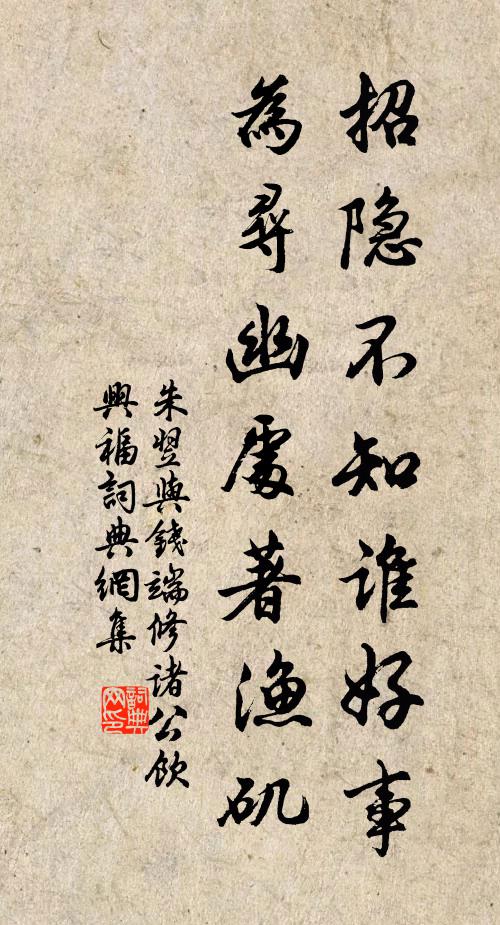 招隐不知谁好事
為尋幽處著渔矶
朱翌與錢端修诸公飲
興福詞典網集
詞典
网印